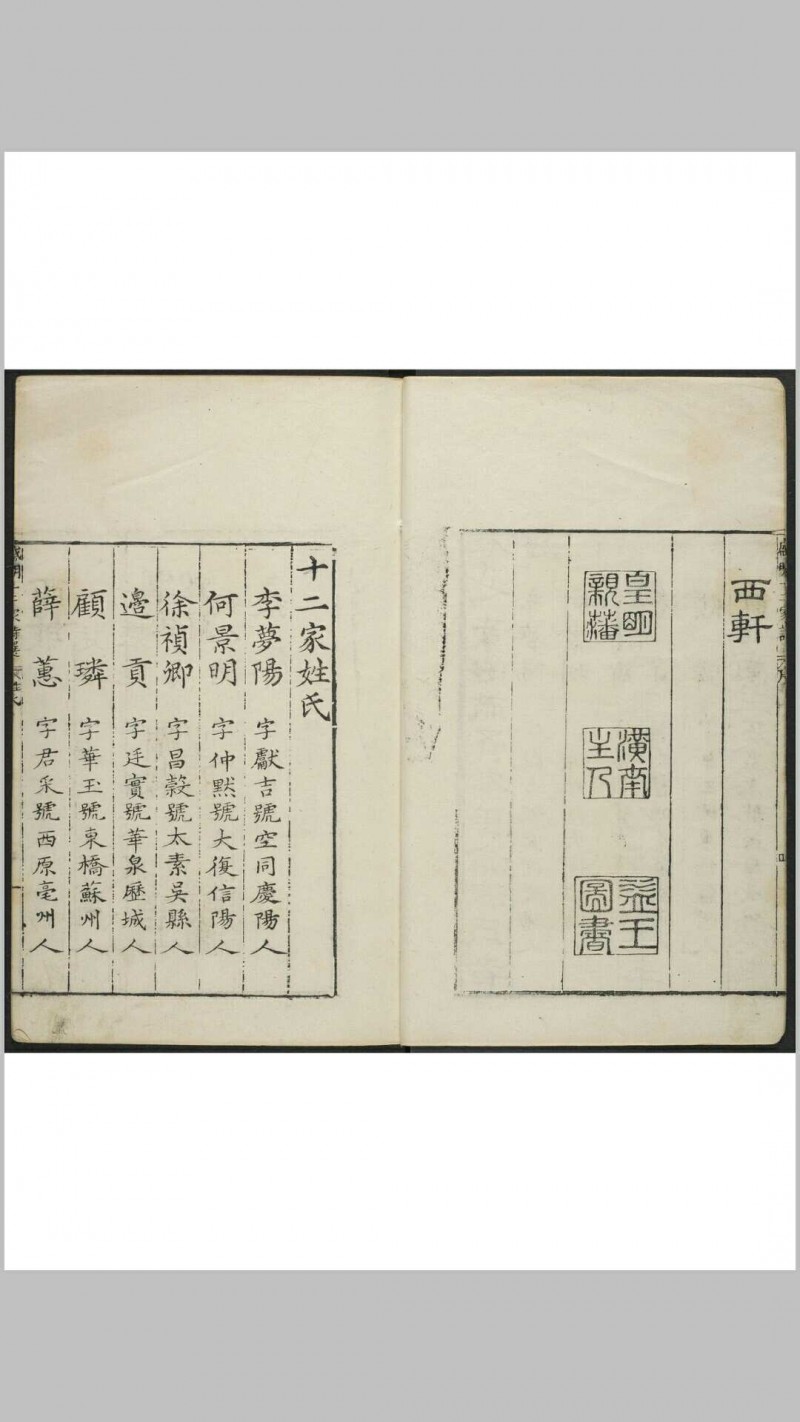 西軒
皇明
親藩
潢南
主人
益王
圖書
十二家姓氏
李夢陽 字獻吉號空同慶陽人
何景明 字仲默號大復信陽人
徐禎卿 字昌穀號太素吳縣人
邊貢 字廷實號華泉歷城人
顧璘 字華玉號東橋蘇州人
薛蕙 字君采號西原亳州人